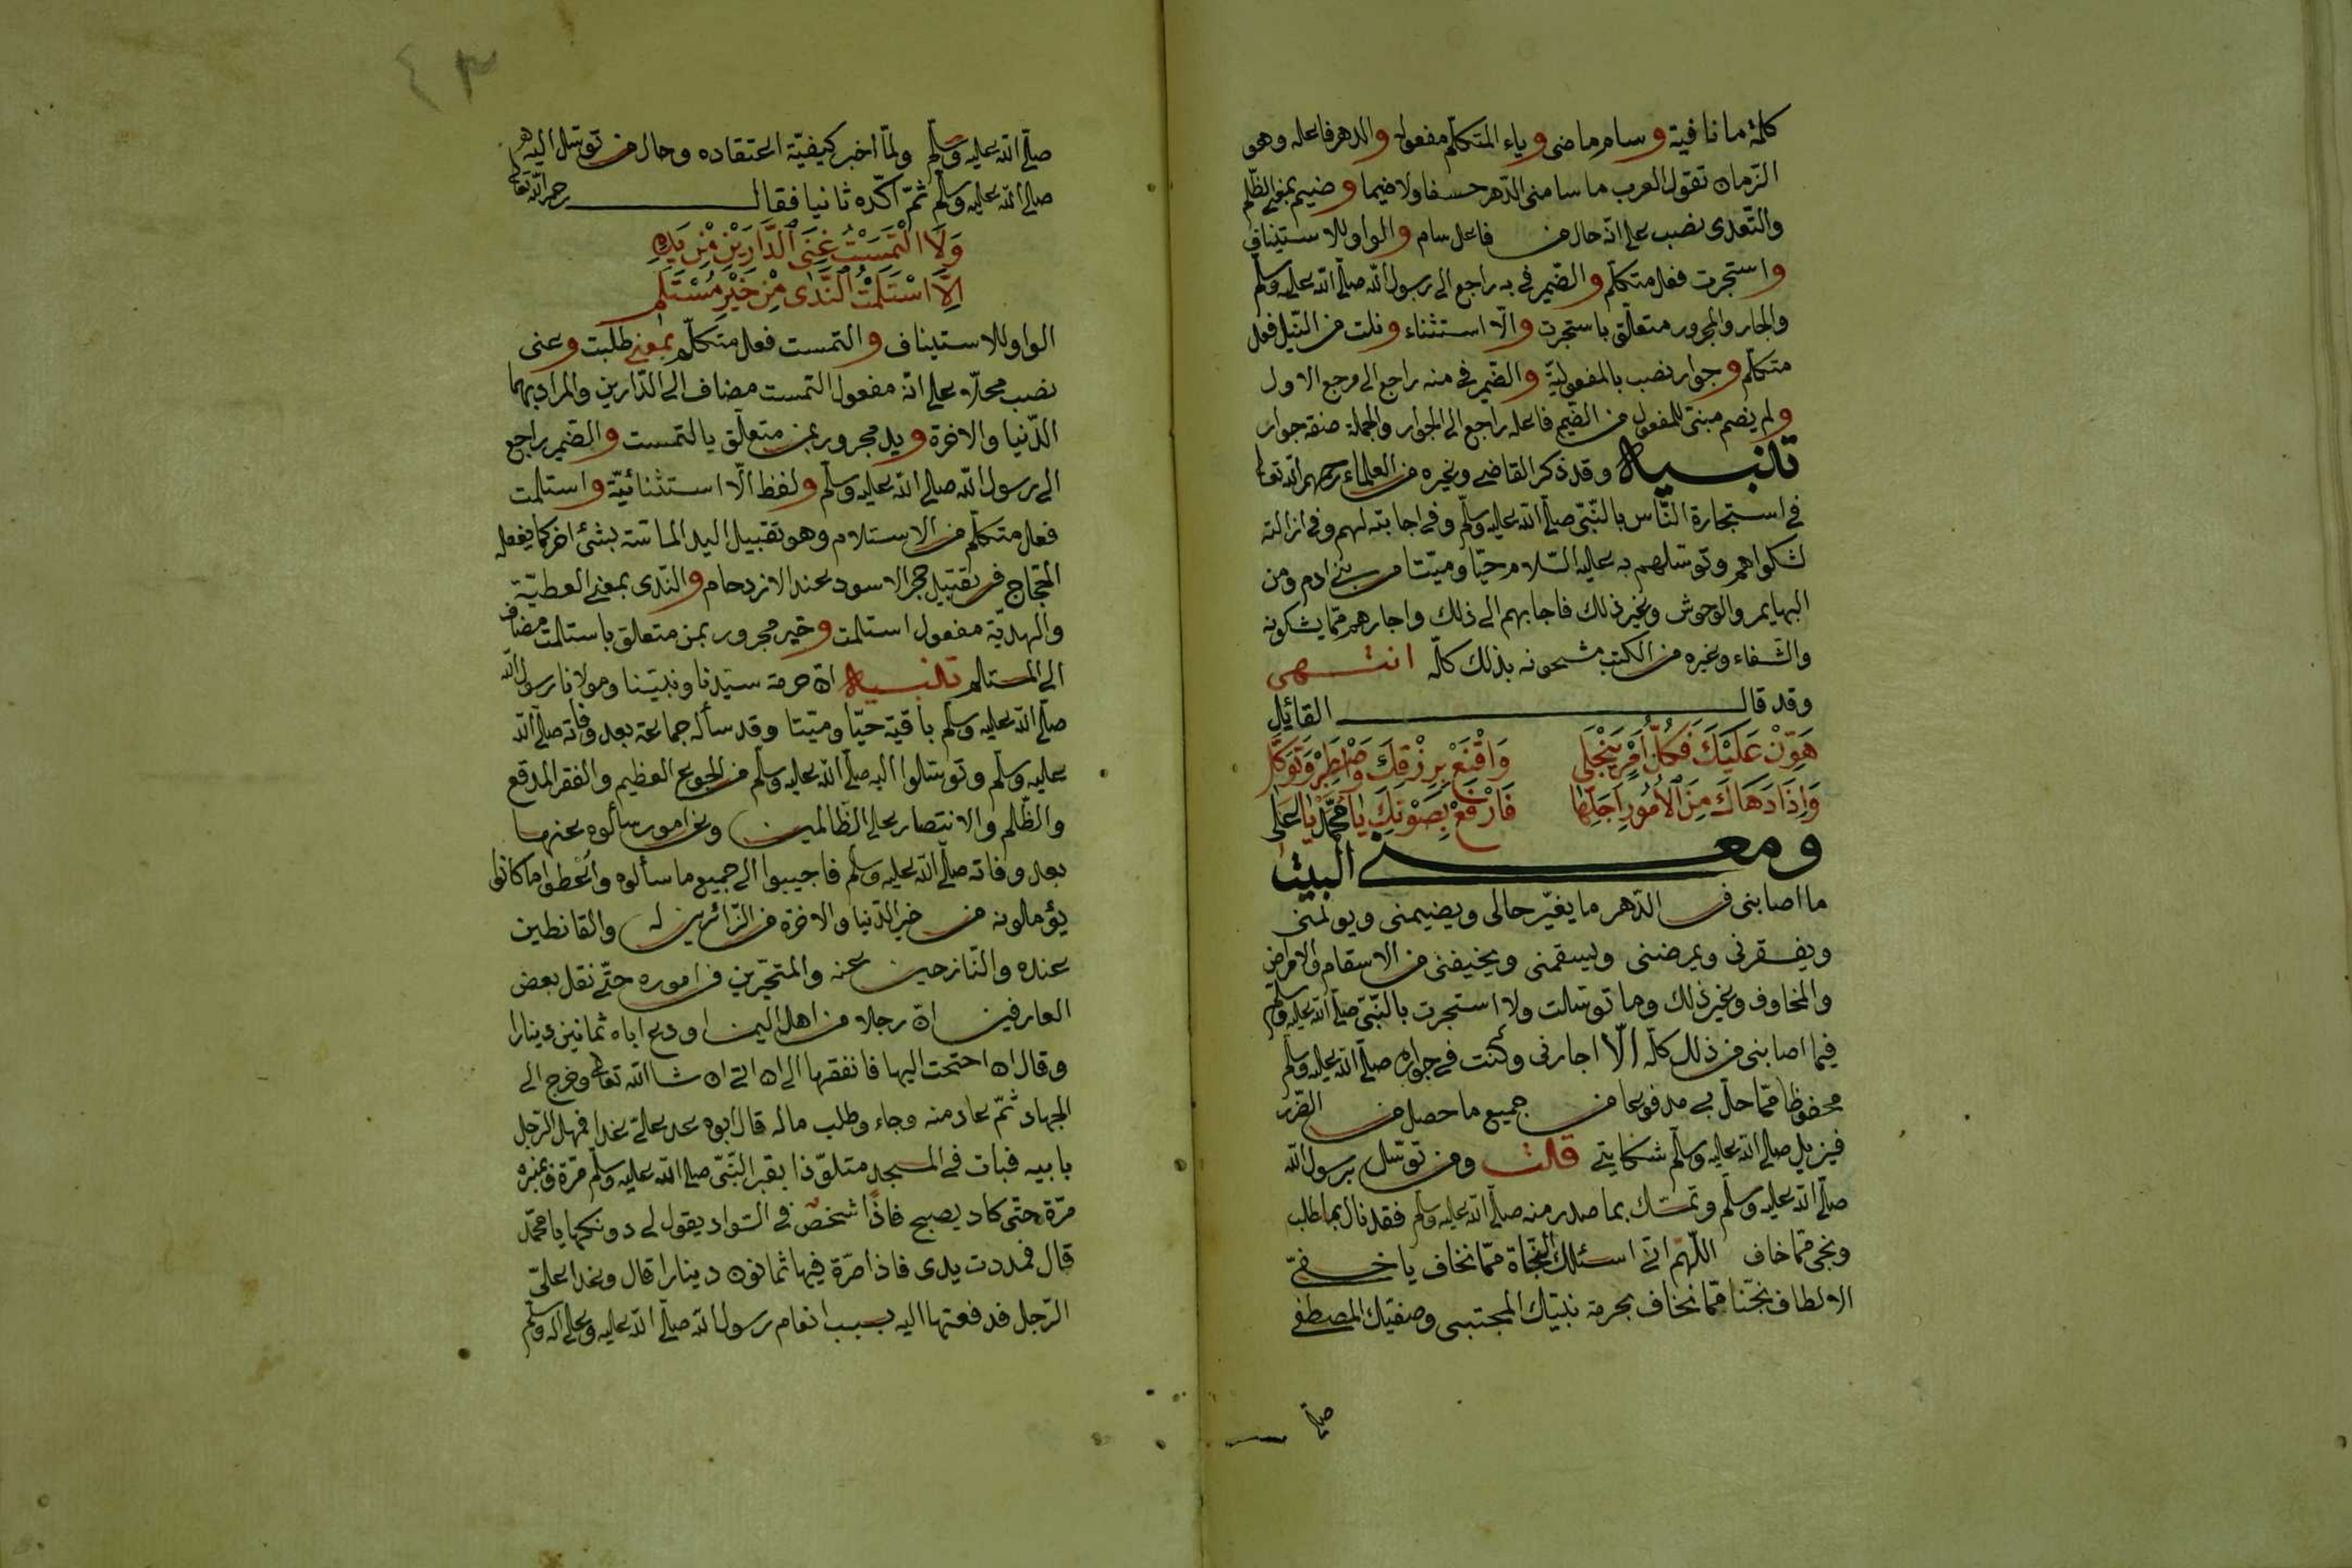 كلمة ما نافية وسام ماضى وياء المتكلّم مفعوله والدهر فاعله وهو
الزّمان تقول العرب ما سامنى الدّهر خسفا ولا ضيما وضيم بمعنى الظّلم
والتّعدى نصب على انّه حال من فاعل سام والواو للاستيناف
واستجرت فعل متكلّم والضّمير فى به راجع الى رسول الله صلّى الله عليه وسلّم
والجار والمجرور متعلّق باستجرت والّا استثناء ونلت من النّيل فعل
متكلّم وجوار نصب بالمفعوليّة والضّمير فى منه راجع الى مرجع الاول
ولم يضم مبنىّ للمفعول من الضّيم فاعله راجع الى الجوار والجملة صفة جوار
تنبيه وقد ذكر القاضى وغيره من العلماء رحمهم الله تعا
فى استجارة النّاس بالنّبىّ صلّى الله عليه وسلّم وفى اجابته لهم وفى ازالته
لشكواهم وتوسّلهم به عليه السّلام حيّا وميّتا من بنى ادم ومن
البهايم والوحوش وغير ذلك فاجابهم الى ذلك واجارهم ممّا يشكونه
والشّفاء وغيره من الكتب مشحونه بذلك كلّه انتهى
وقد قال القائل
هَوِّنْ عَلَيْكَ فَكُلُّ اَمْرٍ يَنْجَلِى وَاقْنَعْ بِرِزْقِكَ وَاصْطَبِرْ وَتَوَكَّلِ
وَاِذَا دَهَاكَ مِنَ الْاُمُورِ اَجَلُّهَا فَارْفَعْ بِصَوْتِكَ يَا مُحَمَّدُ يَا عَلِى
ومعنى البيت
ما اصابنى فى الدّهر ما يغيّر حالى ويضيمنى ويولمنى
ويفقرنى ويمرضنى ويسقمنى ويخيفنى من الاسقام والامراض
والمخاوف وغير ذلك وما توسّلت ولا استجرت بالنّبىّ صلّى الله عليه وسلّم
فيما اصابنى من ذلك كلّه الّا اجارنى وكنت فى جواره صلّى الله عليه وسلّم
محفوظا ممّا حلّ بى مدفوعا من جميع ما حصل من الضّرر
فيزيل صلّى الله عليه وسلّم شكايتى قلت ومن توسّل برسول الله
صلّى الله عليه وسلّم وتمسّك بما صدر منه صلّى الله عليه وسلّم فقد نال بما طلب
ونجى ممّا خاف اللّهمّ انّى اسئلك النّجاة ممّا نخاف يا خفىّ
الالطاف نجّنا ممّا نخاف بحرمة نبيّك المجتبى وصفيّك المصطفى
صلّى
٤٣
صلّى الله عليه وسلّم ولمّا اخبر كيفيّة اعتقاده وحال من توسّل اليه
صلّى الله عليه وسلّم ثمّ اكّده ثانيا فقال رحمه الله تعالى
وَلَا الْتَمَسْتُ غِنَى الدَّارَيْنِ مِنْ يَدِهِ
اِلَّا اسْتَلَمْتُ النَّدَى مِنْ خَيْرِ مُسْتَلَمِ
الواو للاستيناف والتمست فعل متكلّم بمعنى طلبت وغنى
نصب محلّا على انّه مفعول التمست مضاف الى الدّارين والمراد بهما
الدّنيا والاخرة ويد مجرور بمن متعلّق يالتمست والضّمير راجع
الى رسول الله صلّى الله عليه وسلّم ولفظ الّا استثنائيّة واستلمت
فعل متكلّم من الاستلام وهو تقبيل اليد الماسّة بشئ اخر كما يفعله
الحجّاج فى تقبيل حجر الاسود عند الازدحام والنّدى بمعنى العطيّة
والهديّة مفعول استلمت وخير مجرور بمن متعلق باستلمت مضاف
الى المستلم تنبيه انّ حرمة سيّدنا ونبيّنا ومولانا رسول الله
صلّى الله عليه وسلّم باقية حيّا وميّتا وقد سأله جماعة بعد وفاته صلّى الله
عليه وسلّم وتوسّلوا اليه صلّى الله عليه وسلّم من الجوع العظيم والفقر المدقع
والظّلم والانتصار على الظّالمين وعن امور سألوه عنها
بعد وفاته صلّى الله عليه وسلّم فاجيبوا الى جميع ما سألوه واُعْطوا ما كانوا
يؤمالونه من خير الدّنيا والاخرة من الزّائرين له والقانطين
عنده والنّازحين عنه والمتحيّرين فى اموره حتّى نقل بعض
العارفين انّ رجلا من اهل اليمن اودع اباه ثمانين دينارا
وقال ان احتجت اليها فانفقها الى ان اتى ان شا الله تعالى وخرج الى
الجهاد ثمّ عاد منه وجاء وطلب ماله قال ابوه عد علىّ غدا فمهل الرّجل
بابيه فبات فى المسجد متلوّذا بقبر النّبىّ صلّى الله عليه وسلّم مرّة وبمنبره
مرّة حتى كاد يصبح فاذًا شخصٌ فى السّواد يقول لى دونكها يا محمّد
قال فمددت يدى فاذا صرّة فيها ثمانون دينارا قال وغدا علىّ
الرّجل فدفعتها اليه بسبب انعام رسول الله صلّى الله عليه وعلى اله وسلّم